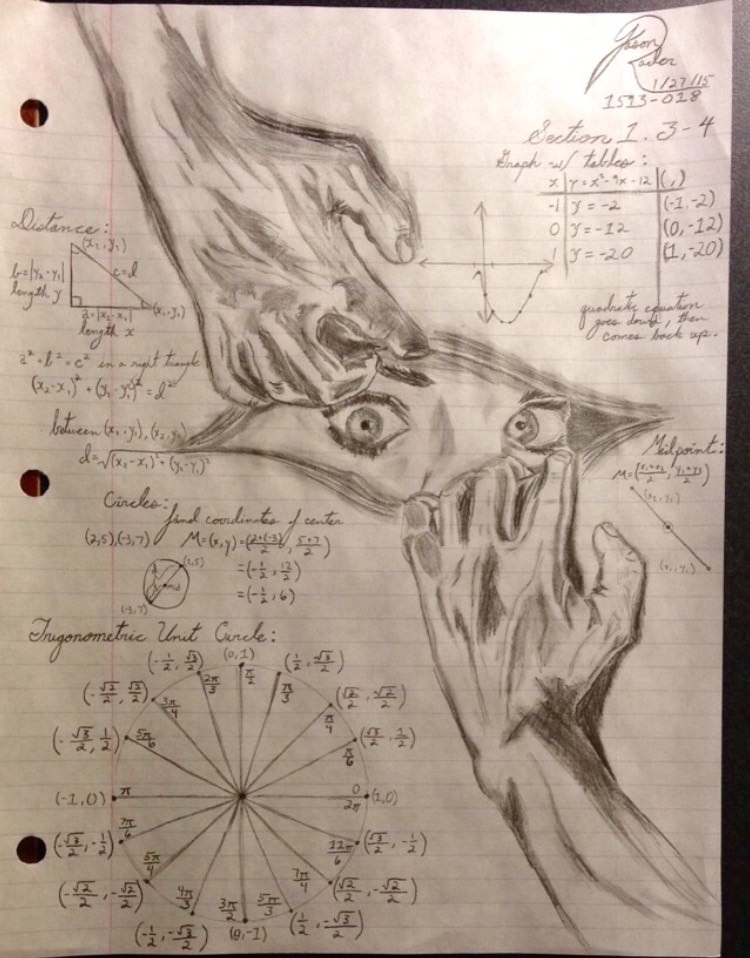 Jason
1/27/15
1513-018
Section 1.3-4
Graph w/ tables:
x y=x²-9x-12 (,)
-1 y=-2 (-1,-2)
0 y=-12 (0,-12)
1 y=-20 (1,-20)
quadratic equation
goes down, then
comes back up.
Distance:
(x₂,y₂)
b=|y₂-y₁| c=d
length y
a=|x₂-x₁| (x₁,y₁)
length x
a²+b²=c² in a right triangle
(x₂-x₁)²+(y₂-y₁)²=d²
between (x₁,y₁),(x₂,y₂)
d=√(x₂-x₁)²+(y₂-y₁)²
Midpoint:
M=(x₁+x₂/2, y₁+y₂/2)
(x₂,y₂)
(x₁,y₁)
Circles:
find coordinates of center
(2,5),(-3,7) M=(x,y)=(2+(-3)/2, 5+7/2)
=(-1/2, 12/2)
=(-1/2, 6)
(2,5)
(-3,7)
Trigonometric Unit Circle:
(-1/2, √3/2) (0,1) (1/2, √3/2)
2π/3 π/2 π/3
(-√2/2, √2/2) 3π/4 π/4 (√2/2, √2/2)
(-√3/2, 1/2) 5π/6 π/6 (√3/2, 1/2)
(-1,0) π 0 2π (1,0)
(-√3/2, -1/2) 7π/6 11π/6 (√3/2, -1/2)
(-√2/2, -√2/2) 5π/4 7π/4 (√2/2, -√2/2)
4π/3 3π/2 5π/3
(-1/2, -√3/2) (0,-1) (1/2, -√3/2)